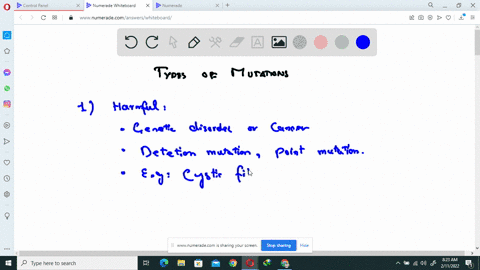 Control Panel
Numerade Whiteboard
Numerade
www.numerade.com/answers/whiteboard/
Types of Mutations
1) Harmful:
• Genetic disorder or Cancer
• Deletion mutation, Point mutation.
• E.g: Cystic fi
www.numerade.com is sharing your screen.
Stop sharing
Hide
Type here to search
8:23 AM
2/11/2022